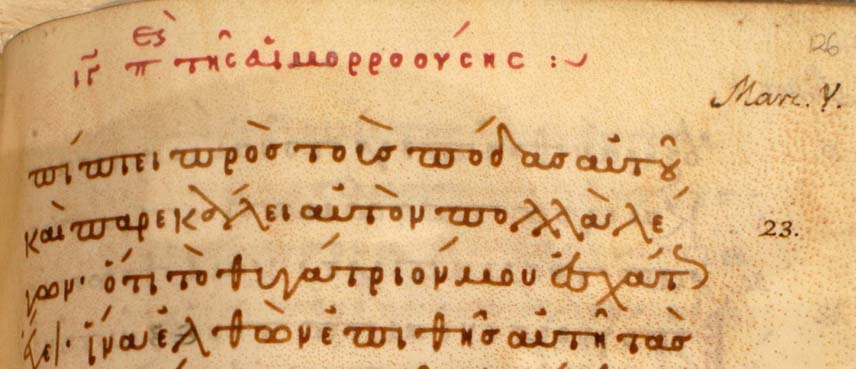 126
ιγ π τῆς αἱμορροούσης :~
Marc. V.
πίπτει πρὸς τοὺς πόδας αὐτοῦ
καὶ παρεκάλει αὐτὸν πολλὰ λέ
23.
γων. ὅτι τὸ θυγάτριόν μου ἐσχάτως
ἔχει. ἵνα ἐλθὼν ἐπιθῆς αὐτῆ τὰς